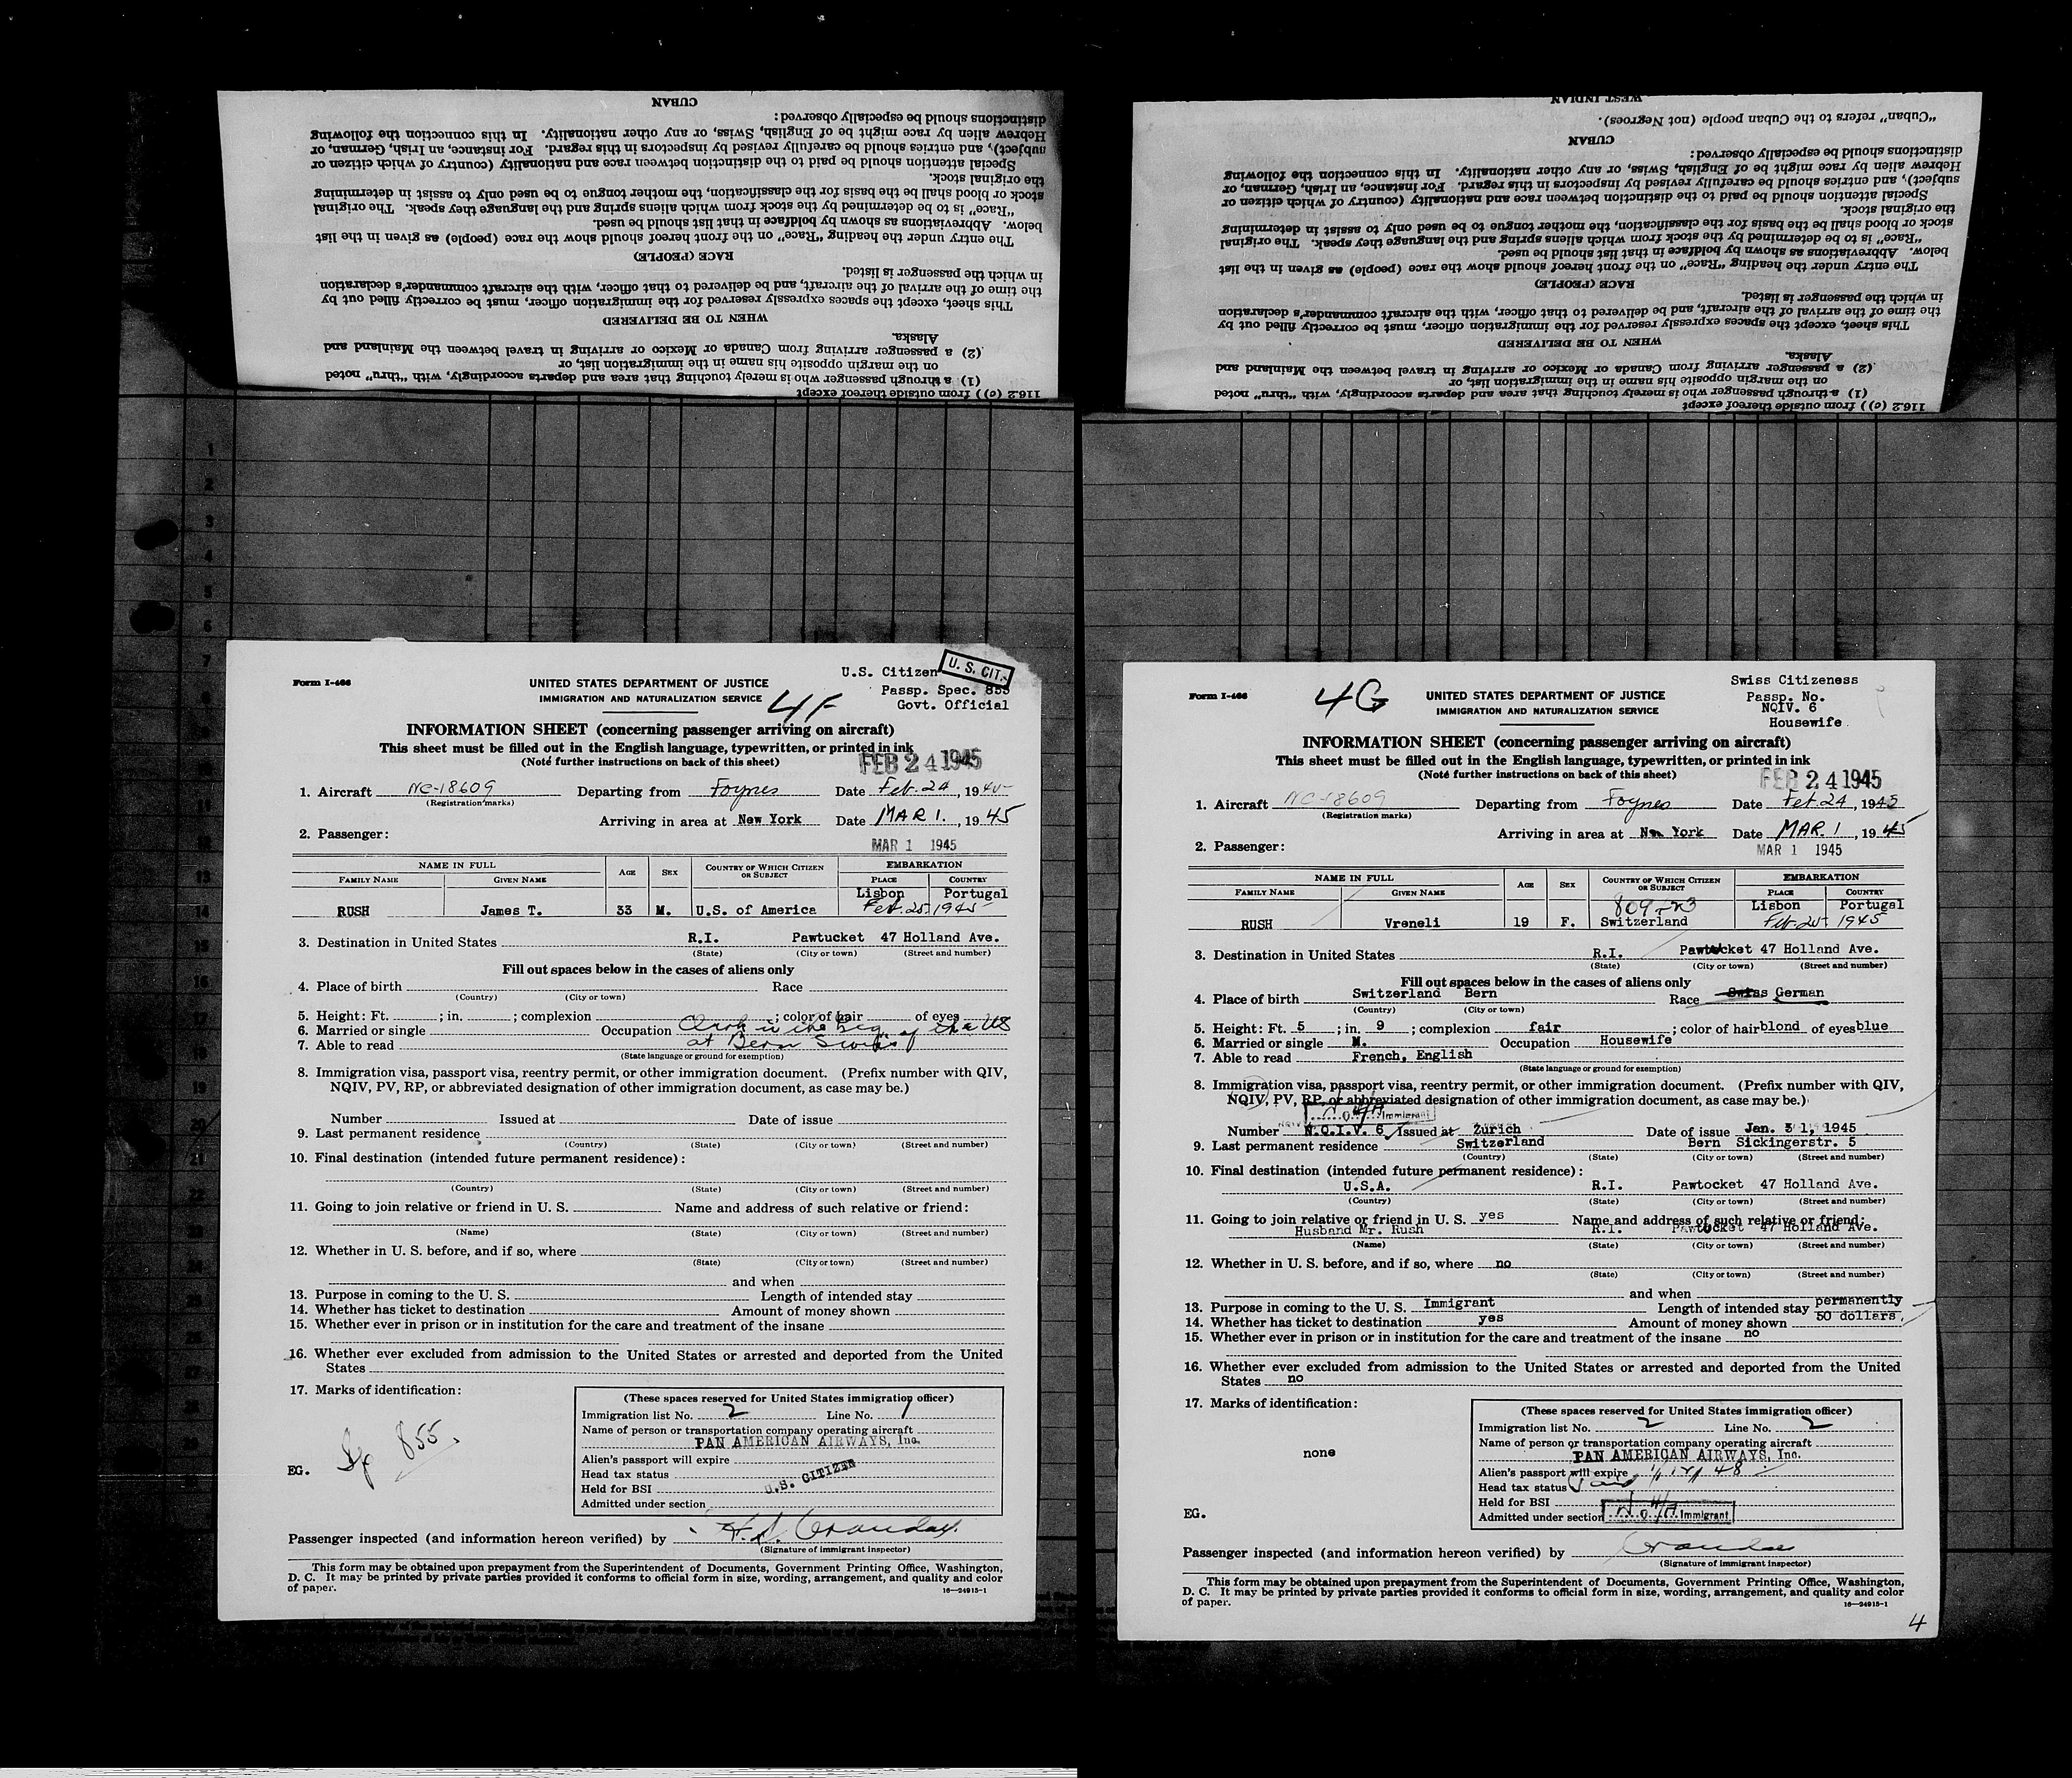 CUBAN
distinctions should be especially observed:
Hebrew alien by race might be of English, Swiss, or any other nationality. In this connection the following
subject), and entries should be carefully revised by inspectors in this regard. For instance, an Irish, German, or
Special attention should be paid to the distinction between race and nationality (country of which citizen or
the original stock.
stock or blood shall be the basis for the classification, the mother tongue to be used only to assist in determining
"Race" is to be determined by the stock from which aliens spring and the language they speak. The original
below. Abbreviations as shown by boldface in that list should be used.
The entry under the heading "Race" on the front hereof should show the race (people) as given in the list
RACE (PEOPLE)
in which the passenger is listed.
the time of the arrival of the aircraft, and be delivered to that officer, with the aircraft commander's declaration
This sheet, except the spaces expressly reserved for the immigration officer, must be correctly filled out by
WHEN TO BE DELIVERED
Alaska.
(2) a passenger arriving from Canada or Mexico or arriving in travel between the Mainland and
on the margin opposite his name in the immigration list, or
(1) a through passenger who is merely touching that area and departs accordingly, with "thru" noted
116.2 (c)) from outside thereof except
1
2
3
4
5
6
7
U.S. Citizen U. S. CIT.
Form I-466 UNITED STATES DEPARTMENT OF JUSTICE Passp. Spec. 855
IMMIGRATION AND NATURALIZATION SERVICE 4F Govt. Official
INFORMATION SHEET (concerning passenger arriving on aircraft)
This sheet must be filled out in the English language, typewritten, or printed in ink
(Note further instructions on back of this sheet) FEB 24 1945
1. Aircraft NC-18609 Departing from Foynes Date Feb. 24, 1945
(Registration marks)
Arriving in area at New York Date MAR 1., 1945
2. Passenger: MAR 1 1945
NAME IN FULL AGE SEX COUNTRY OF WHICH CITIZEN OR SUBJECT EMBARKATION
FAMILY NAME GIVEN NAME PLACE COUNTRY
Lisbon Portugal
RUSH James T. 33 M. U.S. of America Feb. 25. 1945
3. Destination in United States R.I. Pawtucket 47 Holland Ave.
(State) (City or town) (Street and number)
Fill out spaces below in the cases of aliens only
4. Place of birth Race
(Country) (City or town)
5. Height: Ft. ; in. ; complexion ; color of hair of eyes
6. Married or single Occupation Clerk in the Leg. of the US
7. Able to read at Bern Switz
(State language or ground for exemption)
8. Immigration visa, passport visa, reentry permit, or other immigration document. (Prefix number with QIV,
NQIV, PV, RP, or abbreviated designation of other immigration document, as case may be.)
Number Issued at Date of issue
9. Last permanent residence
(Country) (State) (City or town) (Street and number)
10. Final destination (intended future permanent residence):
(Country) (State) (City or town) (Street and number)
11. Going to join relative or friend in U. S. Name and address of such relative or friend:
(Name) (State) (City or town) (Street and number)
12. Whether in U. S. before, and if so, where
(State) (City or town) (Street and number)
and when
13. Purpose in coming to the U. S. Length of intended stay
14. Whether has ticket to destination Amount of money shown
15. Whether ever in prison or in institution for the care and treatment of the insane
16. Whether ever excluded from admission to the United States or arrested and deported from the United
States
17. Marks of identification:
855.
EG.
(These spaces reserved for United States immigration officer)
Immigration list No. 2 Line No. 1
Name of person or transportation company operating aircraft
PAN AMERICAN AIRWAYS, Inc.
Alien's passport will expire
Head tax status U.S. CITIZEN
Held for BSI
Admitted under section
Passenger inspected (and information hereon verified) by
(Signature of immigrant inspector)
This form may be obtained upon prepayment from the Superintendent of Documents, Government Printing Office, Washington,
D. C. It may be printed by private parties provided it conforms to official form in size, wording, arrangement, and quality and color
of paper. 16—24915-1
WEST INDIAN
"Cuban" refers to the Cuban people (not Negroes).
CUBAN
distinctions should be especially observed:
Hebrew alien by race might be of English, Swiss, or any other nationality. In this connection the following
subject), and entries should be carefully revised by inspectors in this regard. For instance, an Irish, German, or
Special attention should be paid to the distinction between race and nationality (country of which citizen or
the original stock.
stock or blood shall be the basis for the classification, the mother tongue to be used only to assist in determining
"Race" is to be determined by the stock from which aliens spring and the language they speak. The original
below. Abbreviations as shown by boldface in that list should be used.
The entry under the heading "Race" on the front hereof should show the race (people) as given in the list
RACE (PEOPLE)
in which the passenger is listed.
the time of the arrival of the aircraft, and be delivered to that officer, with the aircraft commander's declaration
This sheet, except the spaces expressly reserved for the immigration officer, must be correctly filled out by
WHEN TO BE DELIVERED
Alaska.
(2) a passenger arriving from Canada or Mexico or arriving in travel between the Mainland and
on the margin opposite his name in the immigration list, or
(1) a through passenger who is merely touching that area and departs accordingly, with "thru" noted
116.2 (c)) from outside thereof except
Swiss Citizeness
Form I-466 4G UNITED STATES DEPARTMENT OF JUSTICE Passp. No.
IMMIGRATION AND NATURALIZATION SERVICE NQIV. 6
Housewife
INFORMATION SHEET (concerning passenger arriving on aircraft)
This sheet must be filled out in the English language, typewritten, or printed in ink
(Note further instructions on back of this sheet) FEB 24 1945
1. Aircraft NC-18609 Departing from Foynes Date Feb. 24, 1945
(Registration marks)
Arriving in area at New York Date MAR. 1, 1945
2. Passenger: MAR 1 1945
NAME IN FULL AGE SEX COUNTRY OF WHICH CITIZEN OR SUBJECT EMBARKATION
FAMILY NAME GIVEN NAME PLACE COUNTRY
809-23 Lisbon Portugal
RUSH Vreneli 19 F. Switzerland Feb. 25. 1945
3. Destination in United States R.I. Pawtucket 47 Holland Ave.
(State) (City or town) (Street and number)
Fill out spaces below in the cases of aliens only
4. Place of birth Switzerland Bern Race Swiss German
(Country) (City or town)
5. Height: Ft. 5 ; in. 9 ; complexion fair ; color of hair blond of eyes blue
6. Married or single M. Occupation Housewife
7. Able to read French, English
(State language or ground for exemption)
8. Immigration visa, passport visa, reentry permit, or other immigration document. (Prefix number with QIV,
NQIV, PV, RP, or abbreviated designation of other immigration document, as case may be.)
Immigrant
Number N.Q.I.V. 6 Issued at Zurich Date of issue Jan. 31, 1945
9. Last permanent residence Switzerland Bern Sickingerstr. 5
(Country) (State) (City or town) (Street and number)
10. Final destination (intended future permanent residence):
U.S.A. R.I. Pawtocket 47 Holland Ave.
(Country) (State) (City or town) (Street and number)
11. Going to join relative or friend in U. S. yes Name and address of such relative or friend:
Husband Mr. Rush R.I. Pawtucket 47 Holland Ave.
(Name) (State) (City or town) (Street and number)
12. Whether in U. S. before, and if so, where no
(State) (City or town) (Street and number)
and when
13. Purpose in coming to the U. S. Immigrant Length of intended stay permanently
14. Whether has ticket to destination yes Amount of money shown 50 dollars.
15. Whether ever in prison or in institution for the care and treatment of the insane no
16. Whether ever excluded from admission to the United States or arrested and deported from the United
States no
17. Marks of identification:
none
EG.
(These spaces reserved for United States immigration officer)
Immigration list No. 2 Line No. 2
Name of person or transportation company operating aircraft
PAN AMERICAN AIRWAYS, Inc.
Alien's passport will expire
Head tax status Paid
Held for BSI
Admitted under section Immigrant
Passenger inspected (and information hereon verified) by
(Signature of immigrant inspector)
This form may be obtained upon prepayment from the Superintendent of Documents, Government Printing Office, Washington,
D. C. It may be printed by private parties provided it conforms to official form in size, wording, arrangement, and quality and color
of paper. 16—24915-1
4